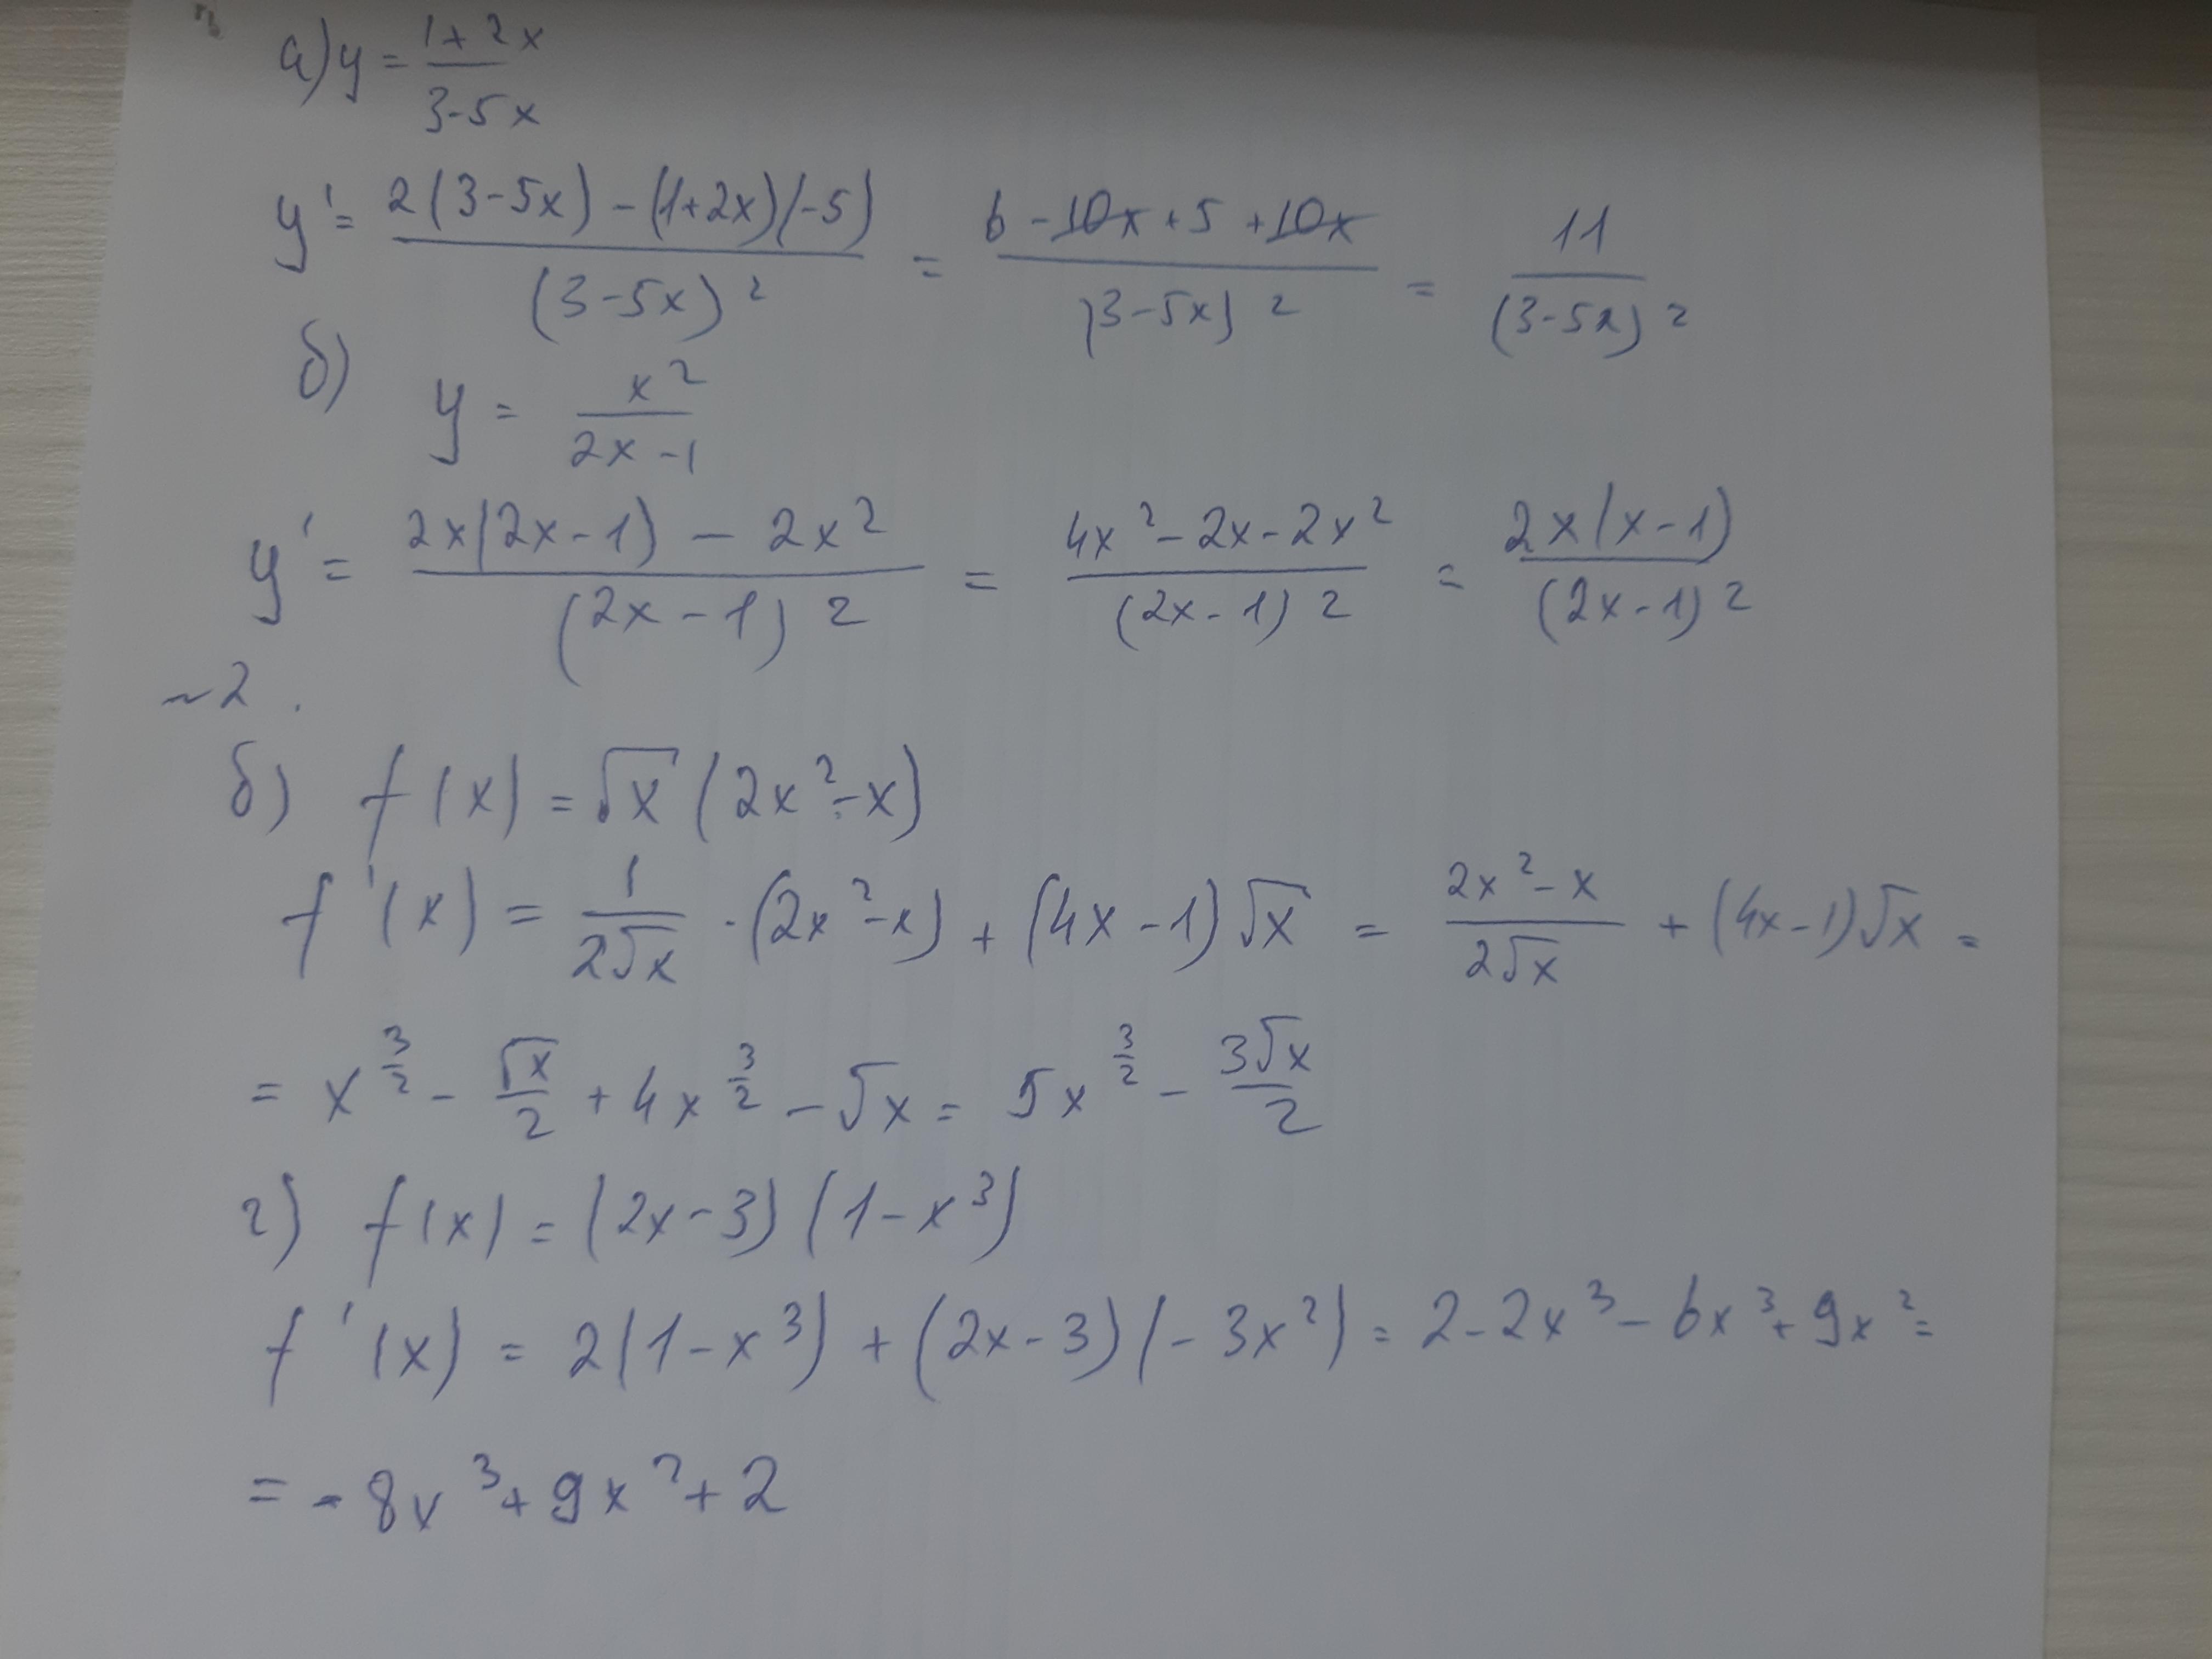 а) y = (1+2x)/(3-5x)
y' = (2(3-5x)-(1+2x)(-5))/((3-5x)²) = (6-10x+5+10x)/((3-5x)²) = 11/((3-5x)²)
б) y = x²/(2x-1)
y' = (2x(2x-1)-2x²)/((2x-1)²) = (4x²-2x-2x²)/((2x-1)²) = (2x(x-1))/((2x-1)²)
~2.
б) f(x) = √x (2x²-x)
f'(x) = 1/(2√x) · (2x²-x) + (4x-1)√x = (2x²-x)/(2√x) + (4x-1)√x =
= x^(3/2) - √x/2 + 4x^(3/2) - √x = 5x^(3/2) - 3√x/2
г) f(x) = (2x-3)(1-x³)
f'(x) = 2(1-x³) + (2x-3)(-3x²) = 2-2x³-6x³+9x² =
= -8x³+9x²+2